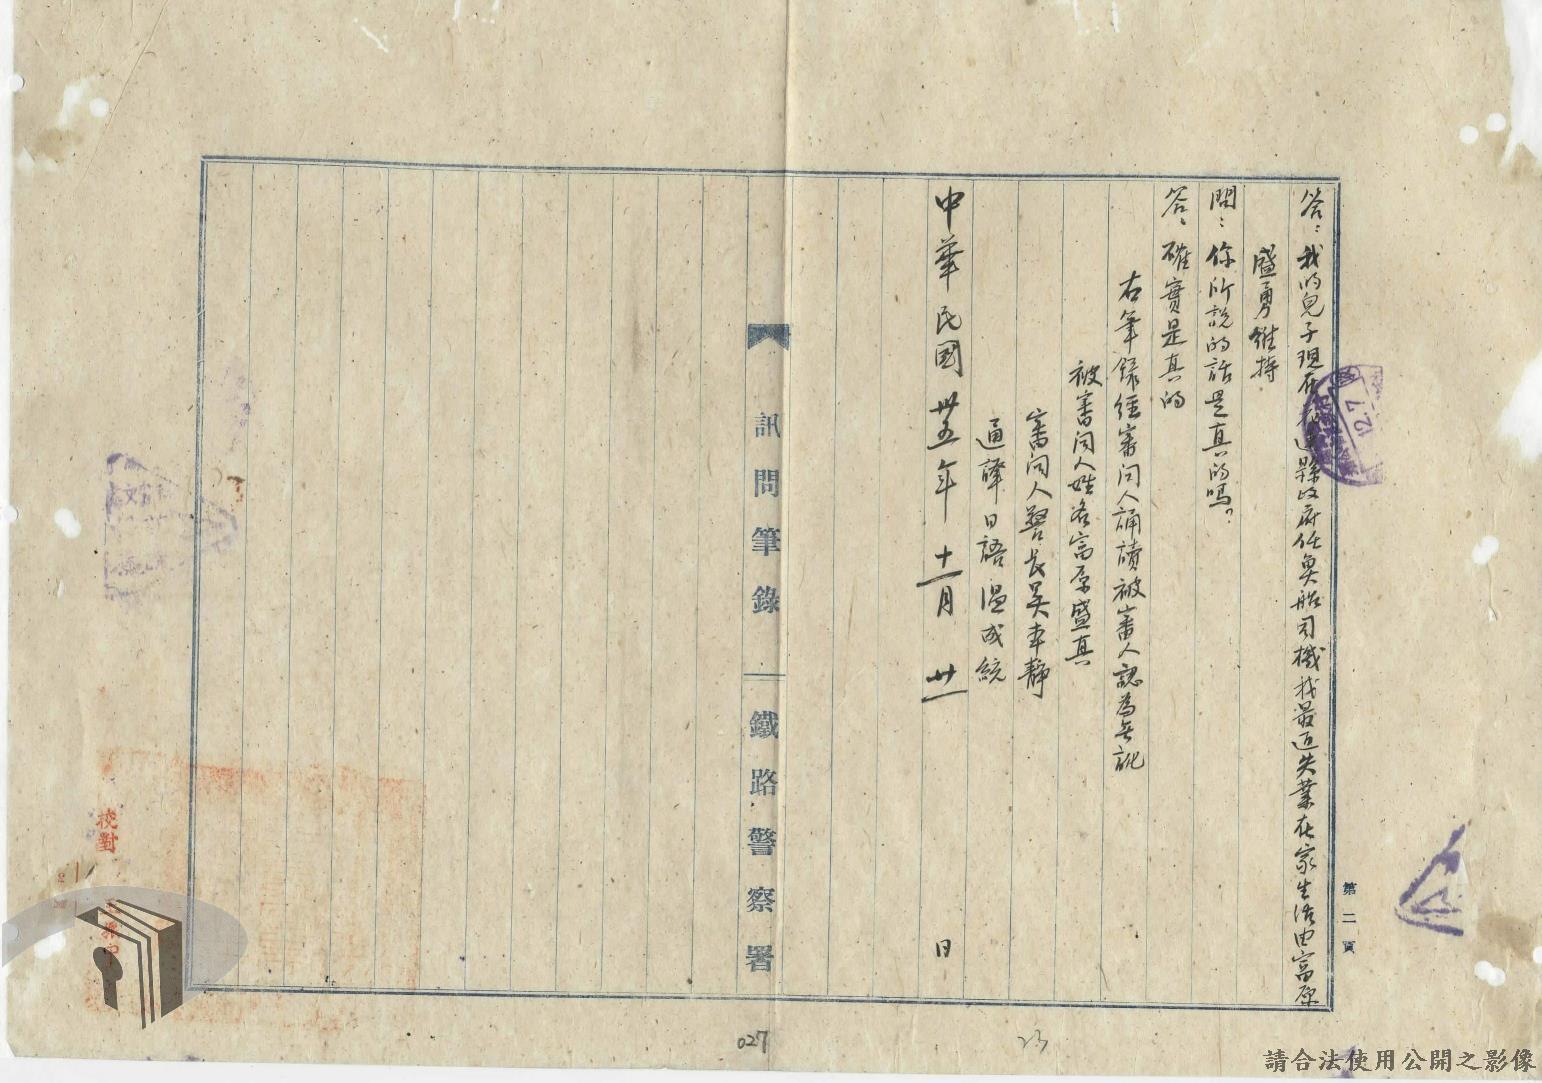 答：我的兒子現在 縣政府任魚船司機我最近失業在家生活由富原
盛勇維持
問：你所說的話是真的嗎。
答：確實是真的
右筆錄經審问人誦讀被審人認為無訛
被審问人姓名富原盛真
審问人警長吳車靜
通譯日語温成統
中華民國卅五年十一月廿一日
訊問筆錄 鐵路警察署
第二頁
12.7
校對
027
23
請合法使用公開之影像